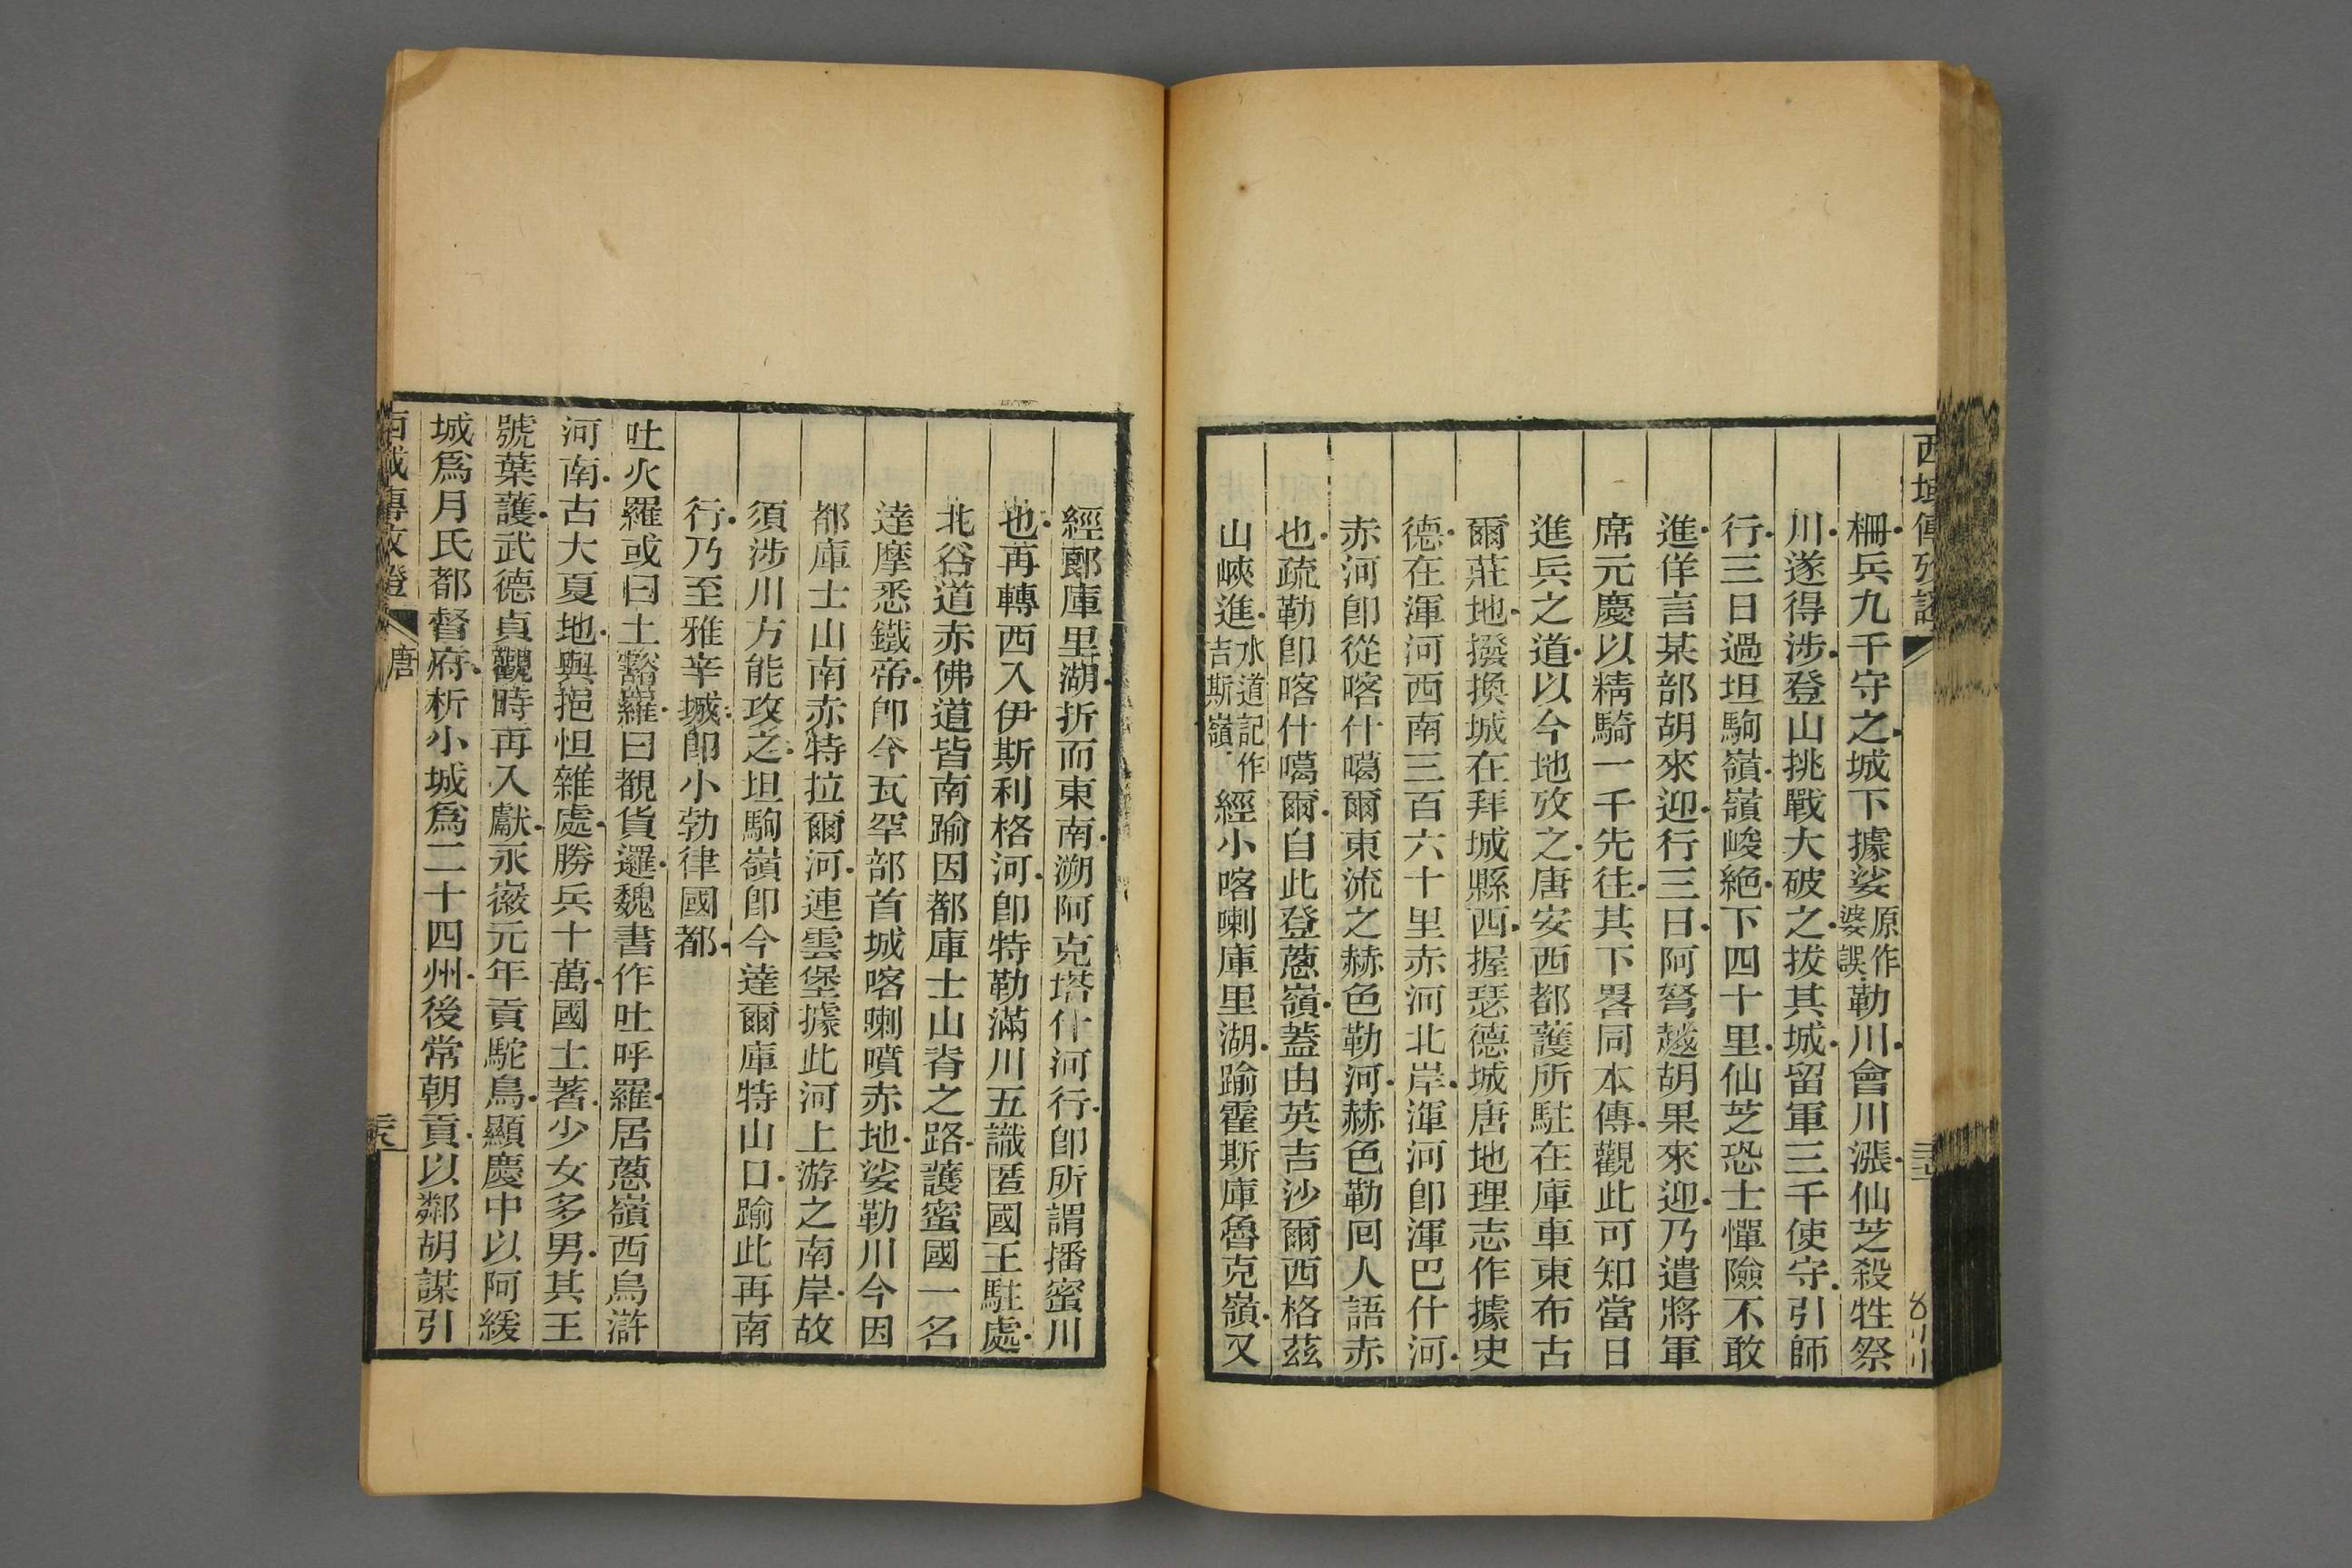 柵兵九千守之城下據娑原作婆誤勒川會川漲仙芝殺牲祭
川遂得涉登山挑戰大破之拔其城留軍三千使守引師
行三日過坦駒嶺嶺峻絶下四十里仙芝恐士憚險不敢
進佯言某部胡來迎行三日阿弩越胡果來迎乃遣將軍
席元慶以精騎一千先往其下畧同本傳觀此可知當日
進兵之道以今地攷之唐安西都護所駐在庫車東布古
爾莊地撥換城在拜城縣西握瑟德城唐地理志作據史
德在渾河西南三百六十里赤河北岸渾河卽渾巴什河
赤河卽從喀什噶爾東流之赫色勒河赫色勒回人語赤
也疏勒卽喀什噶爾自此登蔥嶺蓋由英吉沙爾西格茲
山峽進水道記作吉斯嶺經小喀喇庫里湖踰霍斯庫魯克嶺又
經鄹庫里湖折而東南溯阿克塔什河行卽所謂播蜜川
也再轉西入伊斯利格河卽特勒滿川五識匿國王駐處
北谷道赤佛道皆南踰因都庫士山脊之路護蜜國一名
達摩悉鐵帝卽今瓦罕部首城喀喇噴赤地娑勒川今因
都庫士山南赤特拉爾河連雲堡據此河上游之南岸故
須涉川方能攻之坦駒嶺卽今達爾庫特山口踰此再南
行乃至雅辛城卽小勃律國都
吐火羅或曰土豁羅曰覩貨邏魏書作吐呼羅居蔥嶺西烏滸
河南古大夏地與挹怛雜處勝兵十萬國土著少女多男其王
號葉護武德貞觀時再入獻永徽元年貢駝鳥顯慶中以阿緩
城爲月氏都督府析小城爲二十四州後常朝貢以鄰胡謀引
西域傳攷證 唐